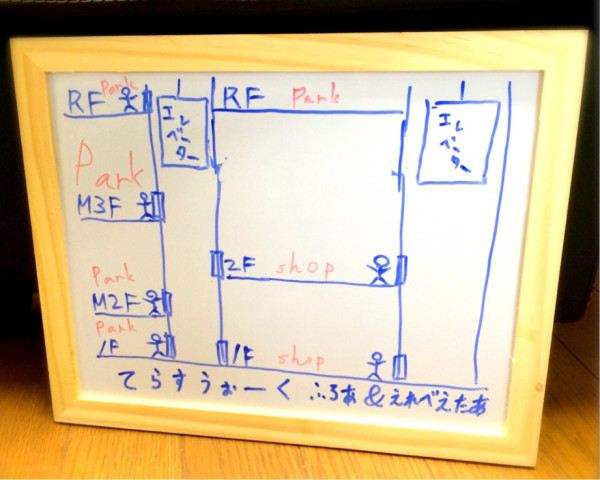 RF Park
エレベーター
RF Park
エレベーター
Park
M3F
2F shop
Park
M2F
Park
1F
1F shop
てらすうぉーく ふろあ&えれべえたあ